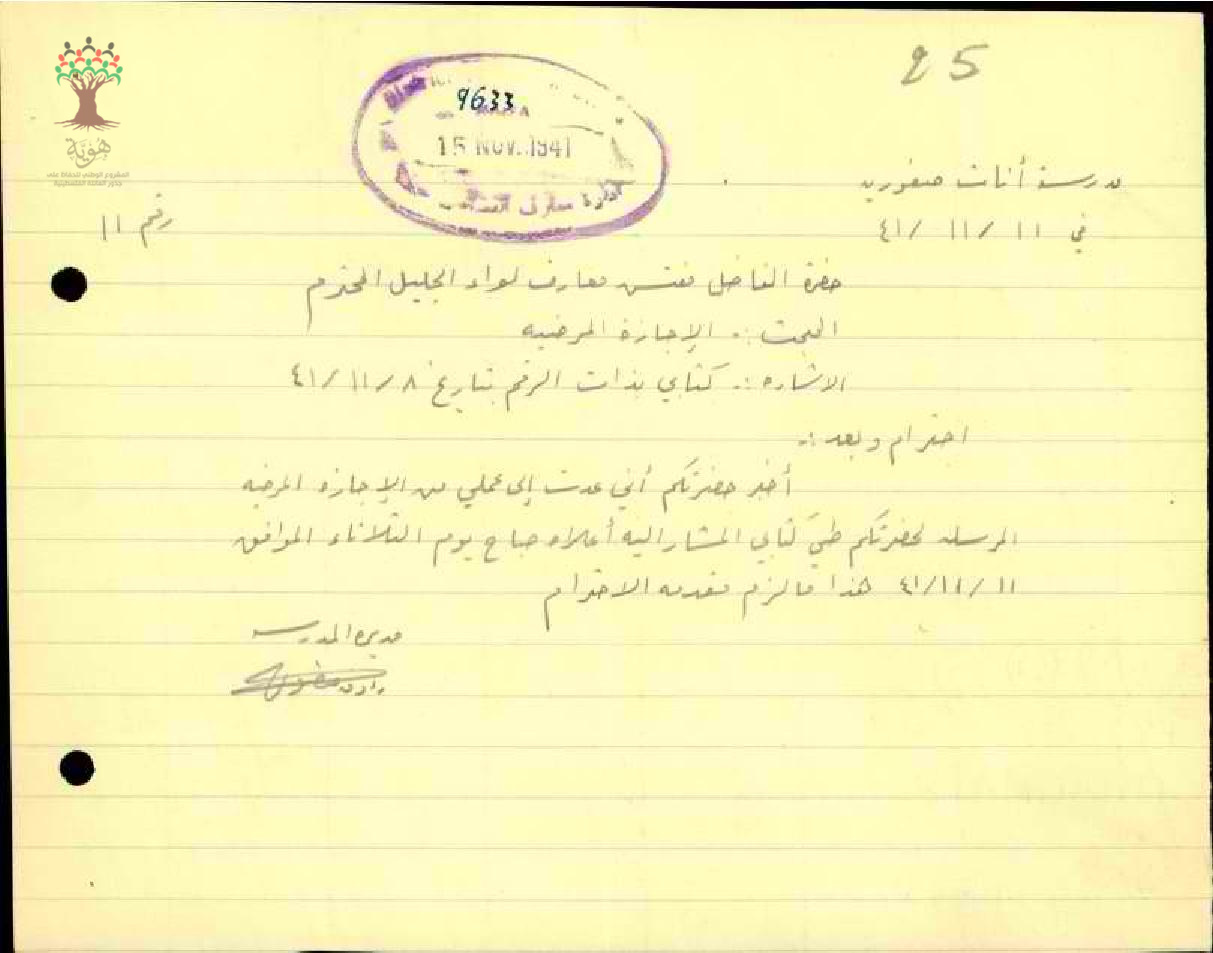 25
هوية
المشروع الوطني للحفاظ على
جذور العائلة الفلسطينية
9633
15 NOV. 1941
إدارة معارف
مدرسة أناث صفورية
في ١١/ ١١/ ٤١
رقم ١١
حضرة الفاضل مفتش معارف لواء الجليل المحترم
البحث :. الإجازة المرضيه
الاشاره :. كتابي بذات الرقم بتاريخ ٨/ ١١/ ٤١
احترام وبعد :.
أخبر حضرتكم أني عدت إلى عملي من الإجازه المرضيه
المرسله لحضرتكم طيّ كتابي المشار اليه أعلاه صباح يوم الثلاثاء الموافق
١١/ ١١/ ٤١ هذا ما لزم مقدمه الاحترام
مديرة المدرسه